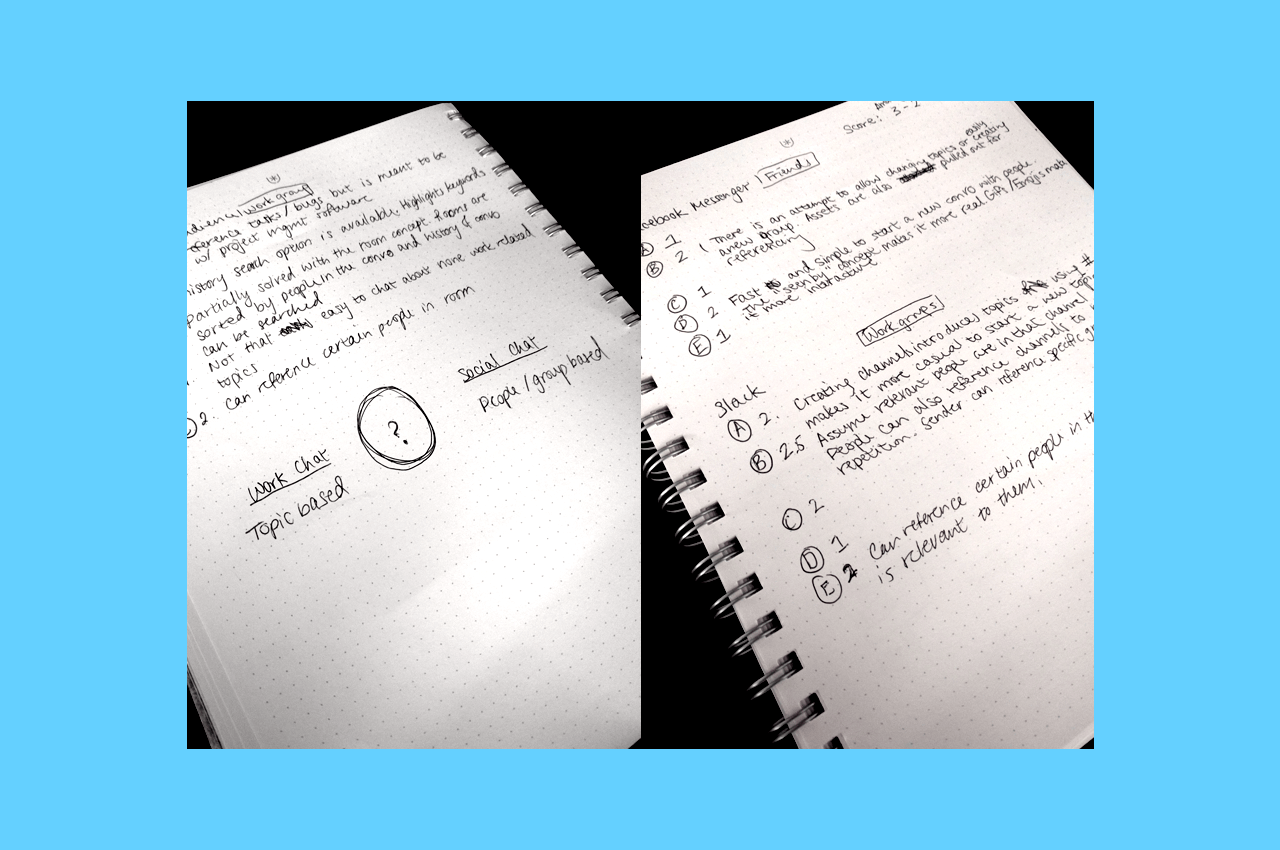 work group
tasks / bugs but is meant to be
w/ project mgmt software
history search option is available. Highlights keywords
Partially solved with the room concept. Rooms are
sorted by people in the convo and history & convo
can be searched
Not that easy to chat about none work related
topics
2. can reference certain people in room
?
social chat
People / group based
Work chat
Topic based
Score: 3 -
Messenger | Friends
A 1
B 2 ( There is an attempt to allow changing topics or easily
anew group. Assets are also pulled out for
referencing
C 1
D 2 Fast and simple to start a new convo with people
E 1 The "seen by" concept makes it more real Gifs / Emojis make
it more interactive
Work groups
Slack
A 2. Creating channels introduces topics using #
makes it more casual to start a new
B 2.5 Assume relevant people are in that channel
People can also reference channels to
repetition. Sender can reference specific
C 2
D 1
E 2 Can reference certain people in
is relevant to them.